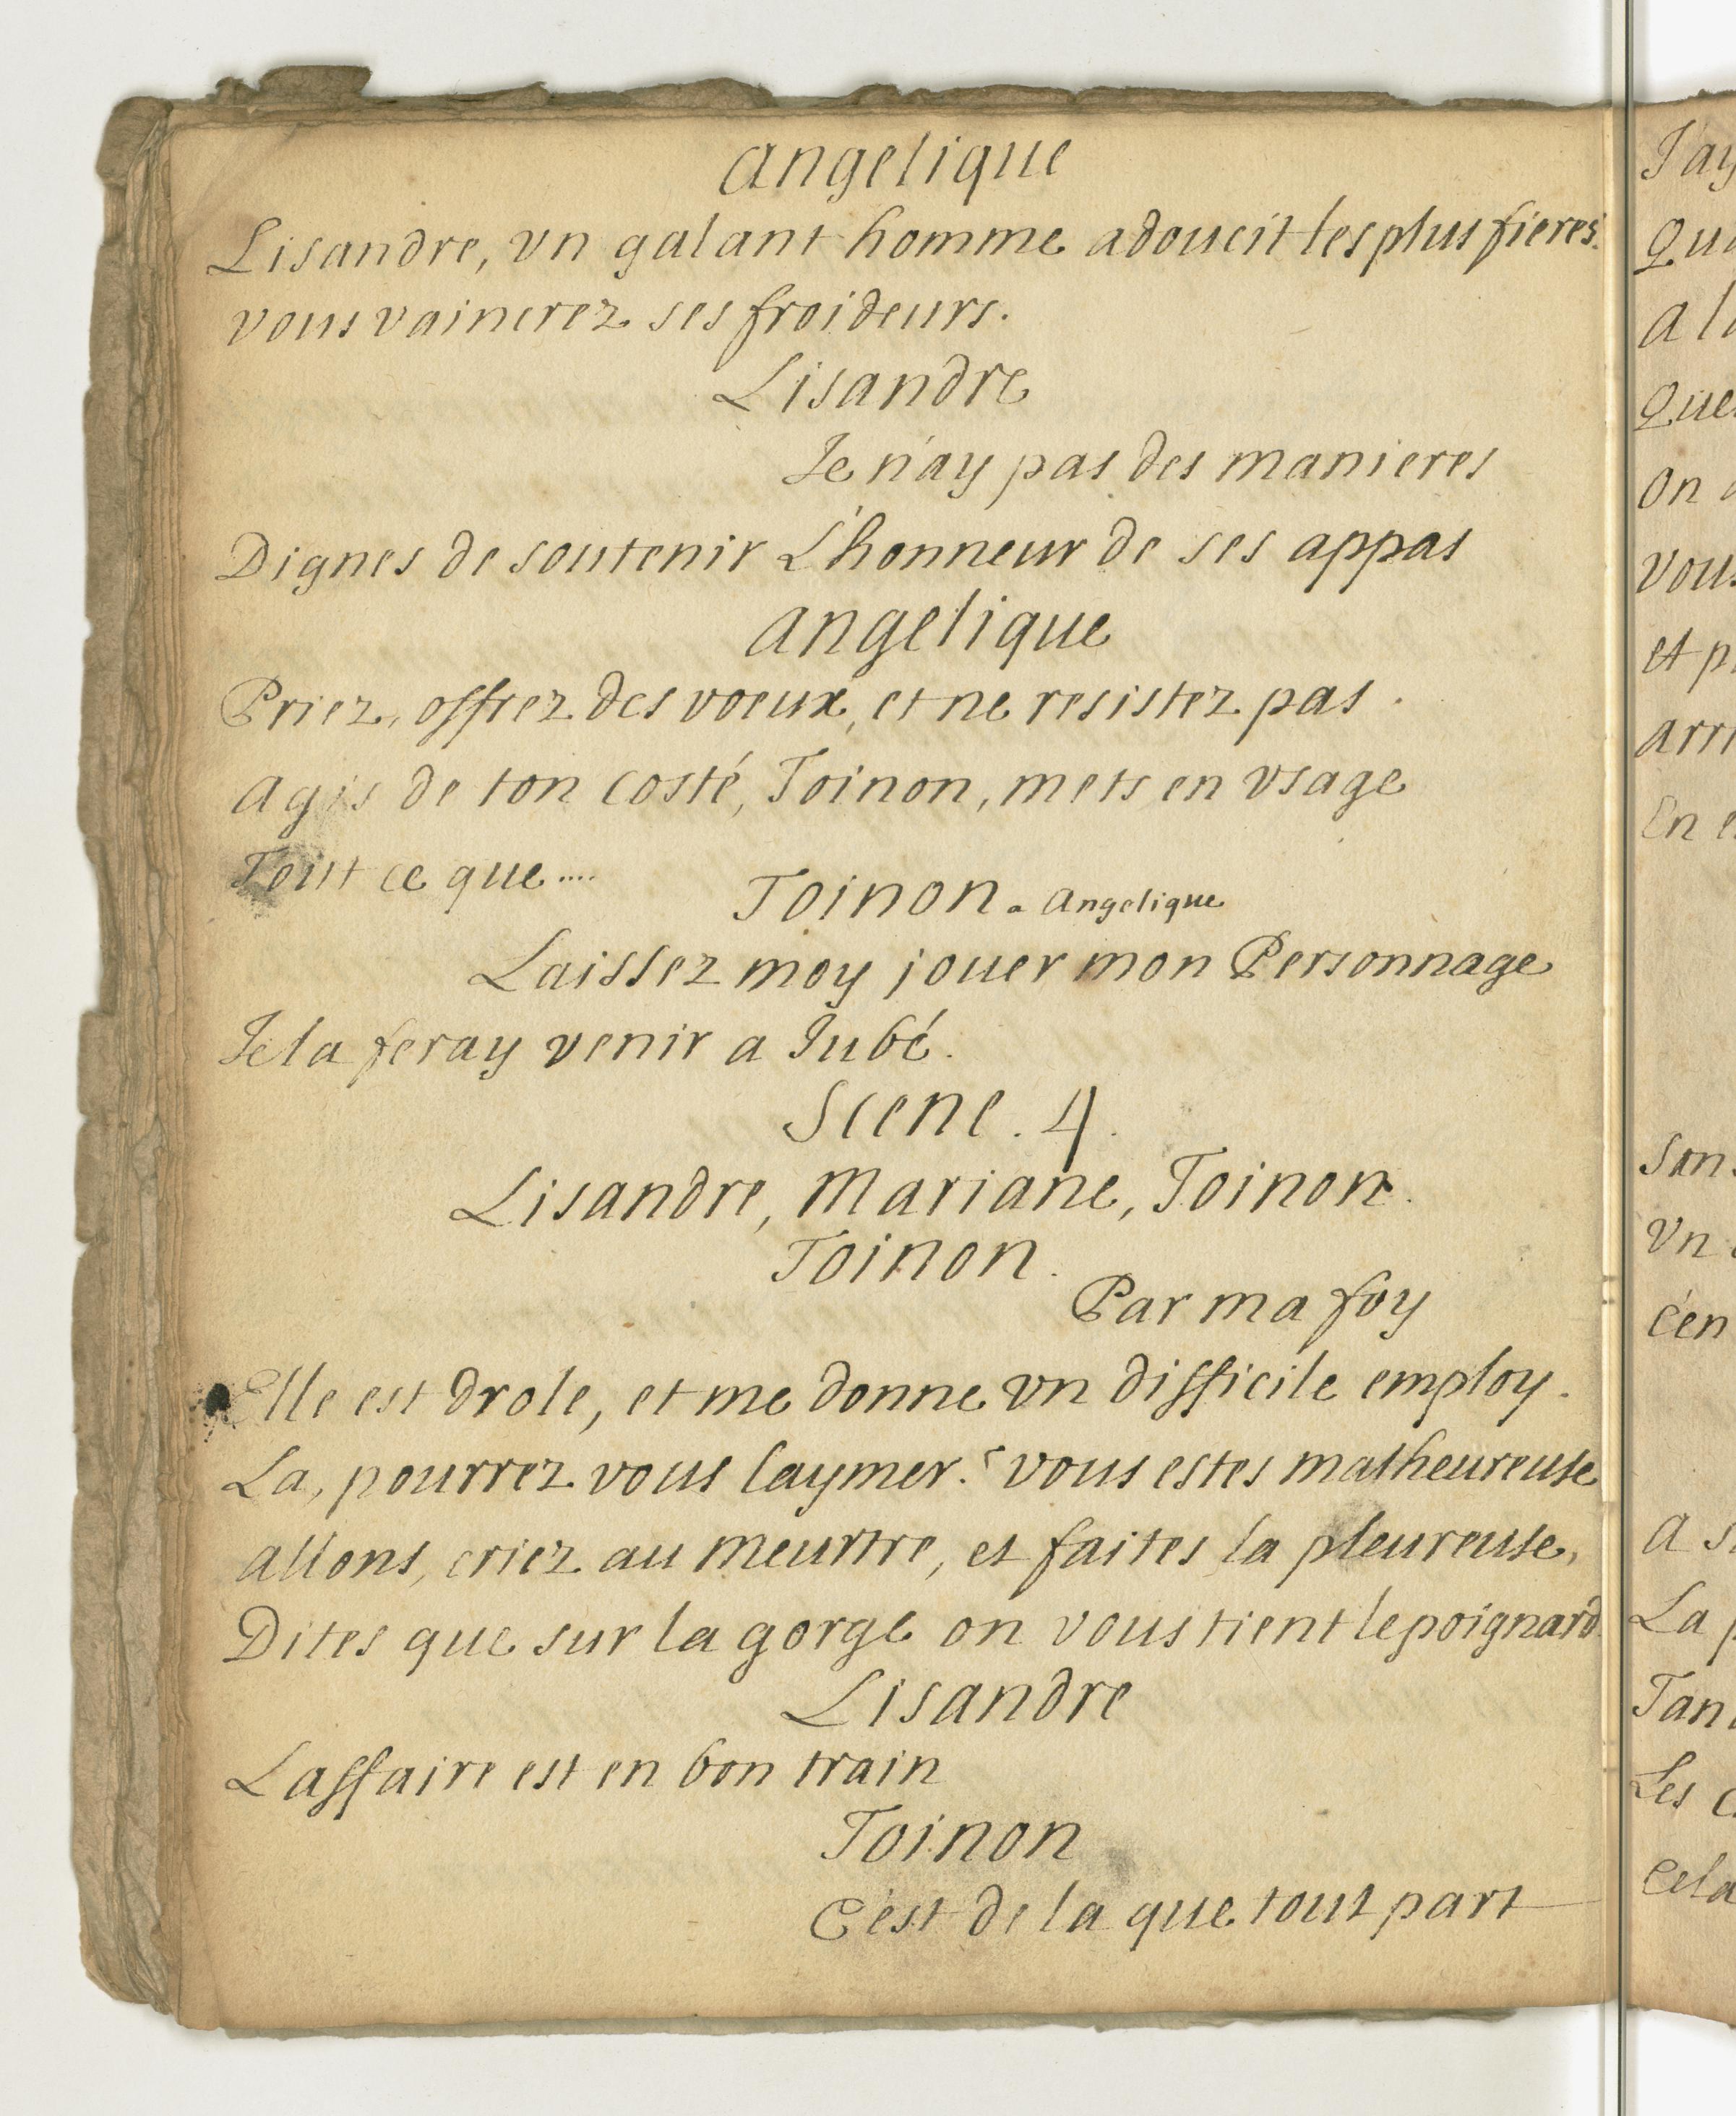 Angelique
Lisandre, vn galant homme adoucit les plus fieres.
vous vaincrez ses froideurs.
Lisandre
Je n'ay pas des manieres
Dignes de soutenir L'honneur de ses appas
Angelique
Priez, offrez des voeux, et ne resistez pas.
Agis de ton costé, Toinon, mets en vsage
Tout ce que....
Toinon. a Angelique
Laissez moy jouer mon Personnage
Je la feray venir a Jubé.
Scene. 4.
Lisandre, Mariane, Toinon.
Toinon.
Par ma foy
Elle est drole, et me donne vn difficile employ.
La, pourrez vous laymer? vous estes malheureuse
allons, criez au meurtre, et faites la pleureuse,
Dites que sur la gorge on vous tient le poignard.
Lisandre
Laffaire est en bon train
Toinon
C'est de la que tout part
J'ay
On
vous
et
En
Vn
c'en
A
La
Les
Cela